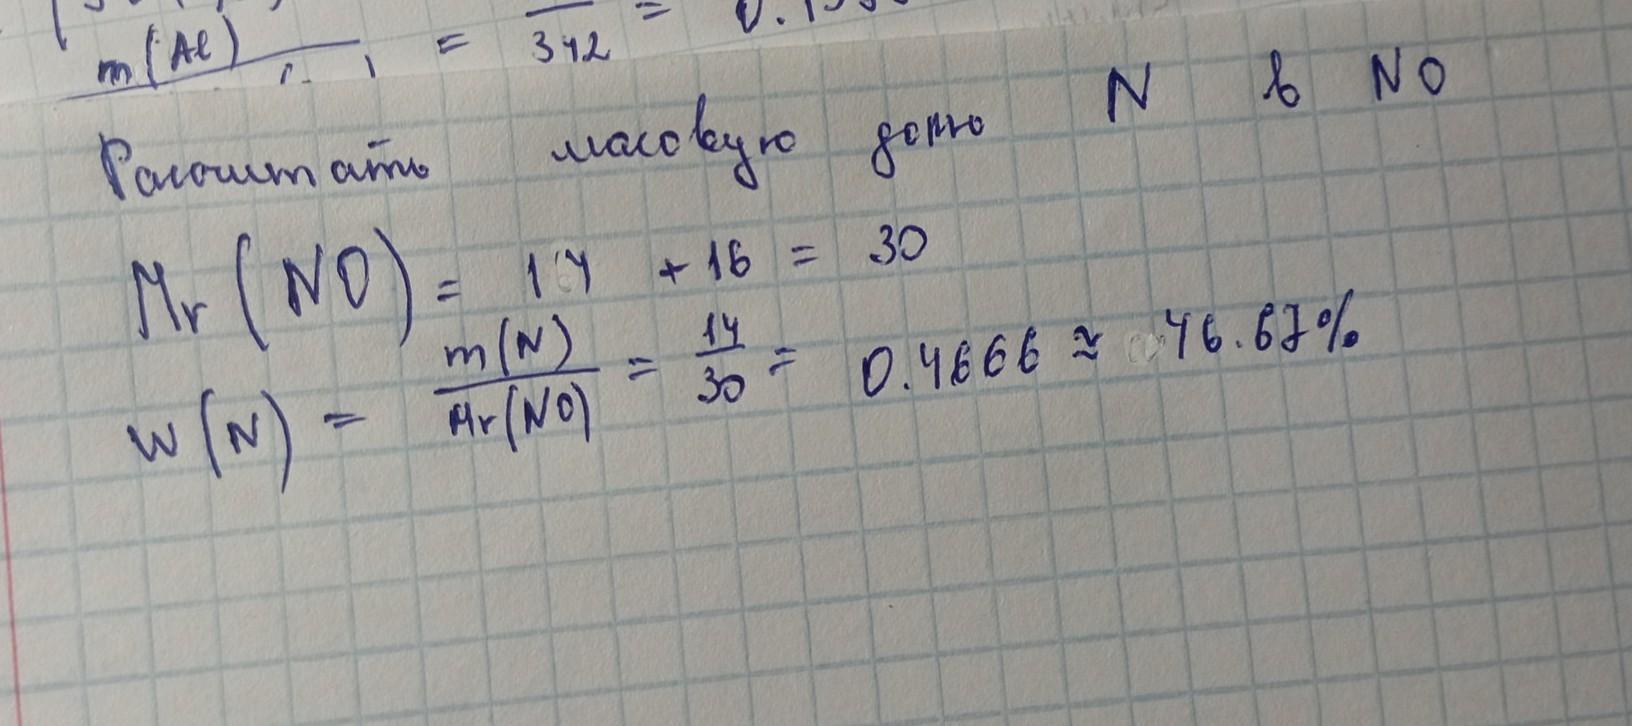 m(Al) = 342 = 0.1
Расчитать масовую долю N в NO
Mr(NO) = 14 + 16 = 30
w(N) = m(N)/Mr(NO) = 14/30 = 0.4666 ≈ 46.67%